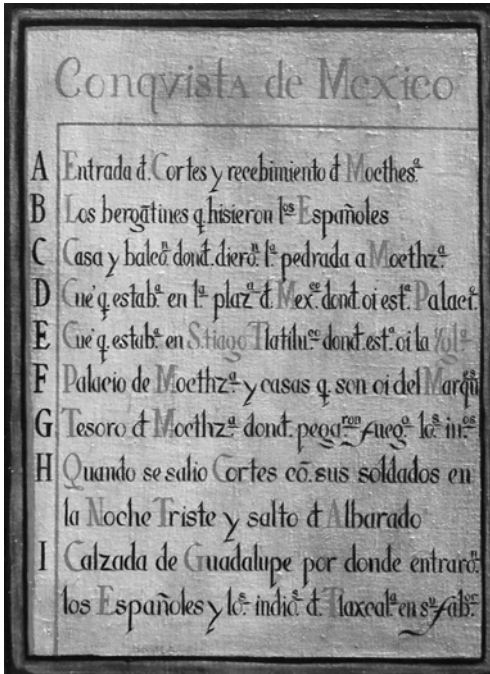 Conqvista de Mexico
A Entrada d. Cortes y recebimiento d Mocthesª
B Los bergãtines q. hisieron lºˢ Españoles
C Casa y balcoⁿ dond. dieroⁿ. lª pedrada a Mocthzª
D Cue q. estabª en lª plazª d. Mexᶜᵒ dond. oi estª Palaciº
E Cue q. estabª en Stiago Tlatiluᶜᵒ dond. estª oi la
F Palacio de Mocthzª y casas q. son oi del Marqũᵉˢ
G Tesoro d Mocthzª dond. pegaʳᵒⁿ fuegº loˢ inᵒˢ
H Quando se salio Cortes cõ. sus soldados en
la Noche Triste y salto d Albarado
I Calzada de Guadalupe por donde entraroⁿ
los Españoles y loˢ indioˢ d. Tlaxcalª en sᵘ fabᵒʳ